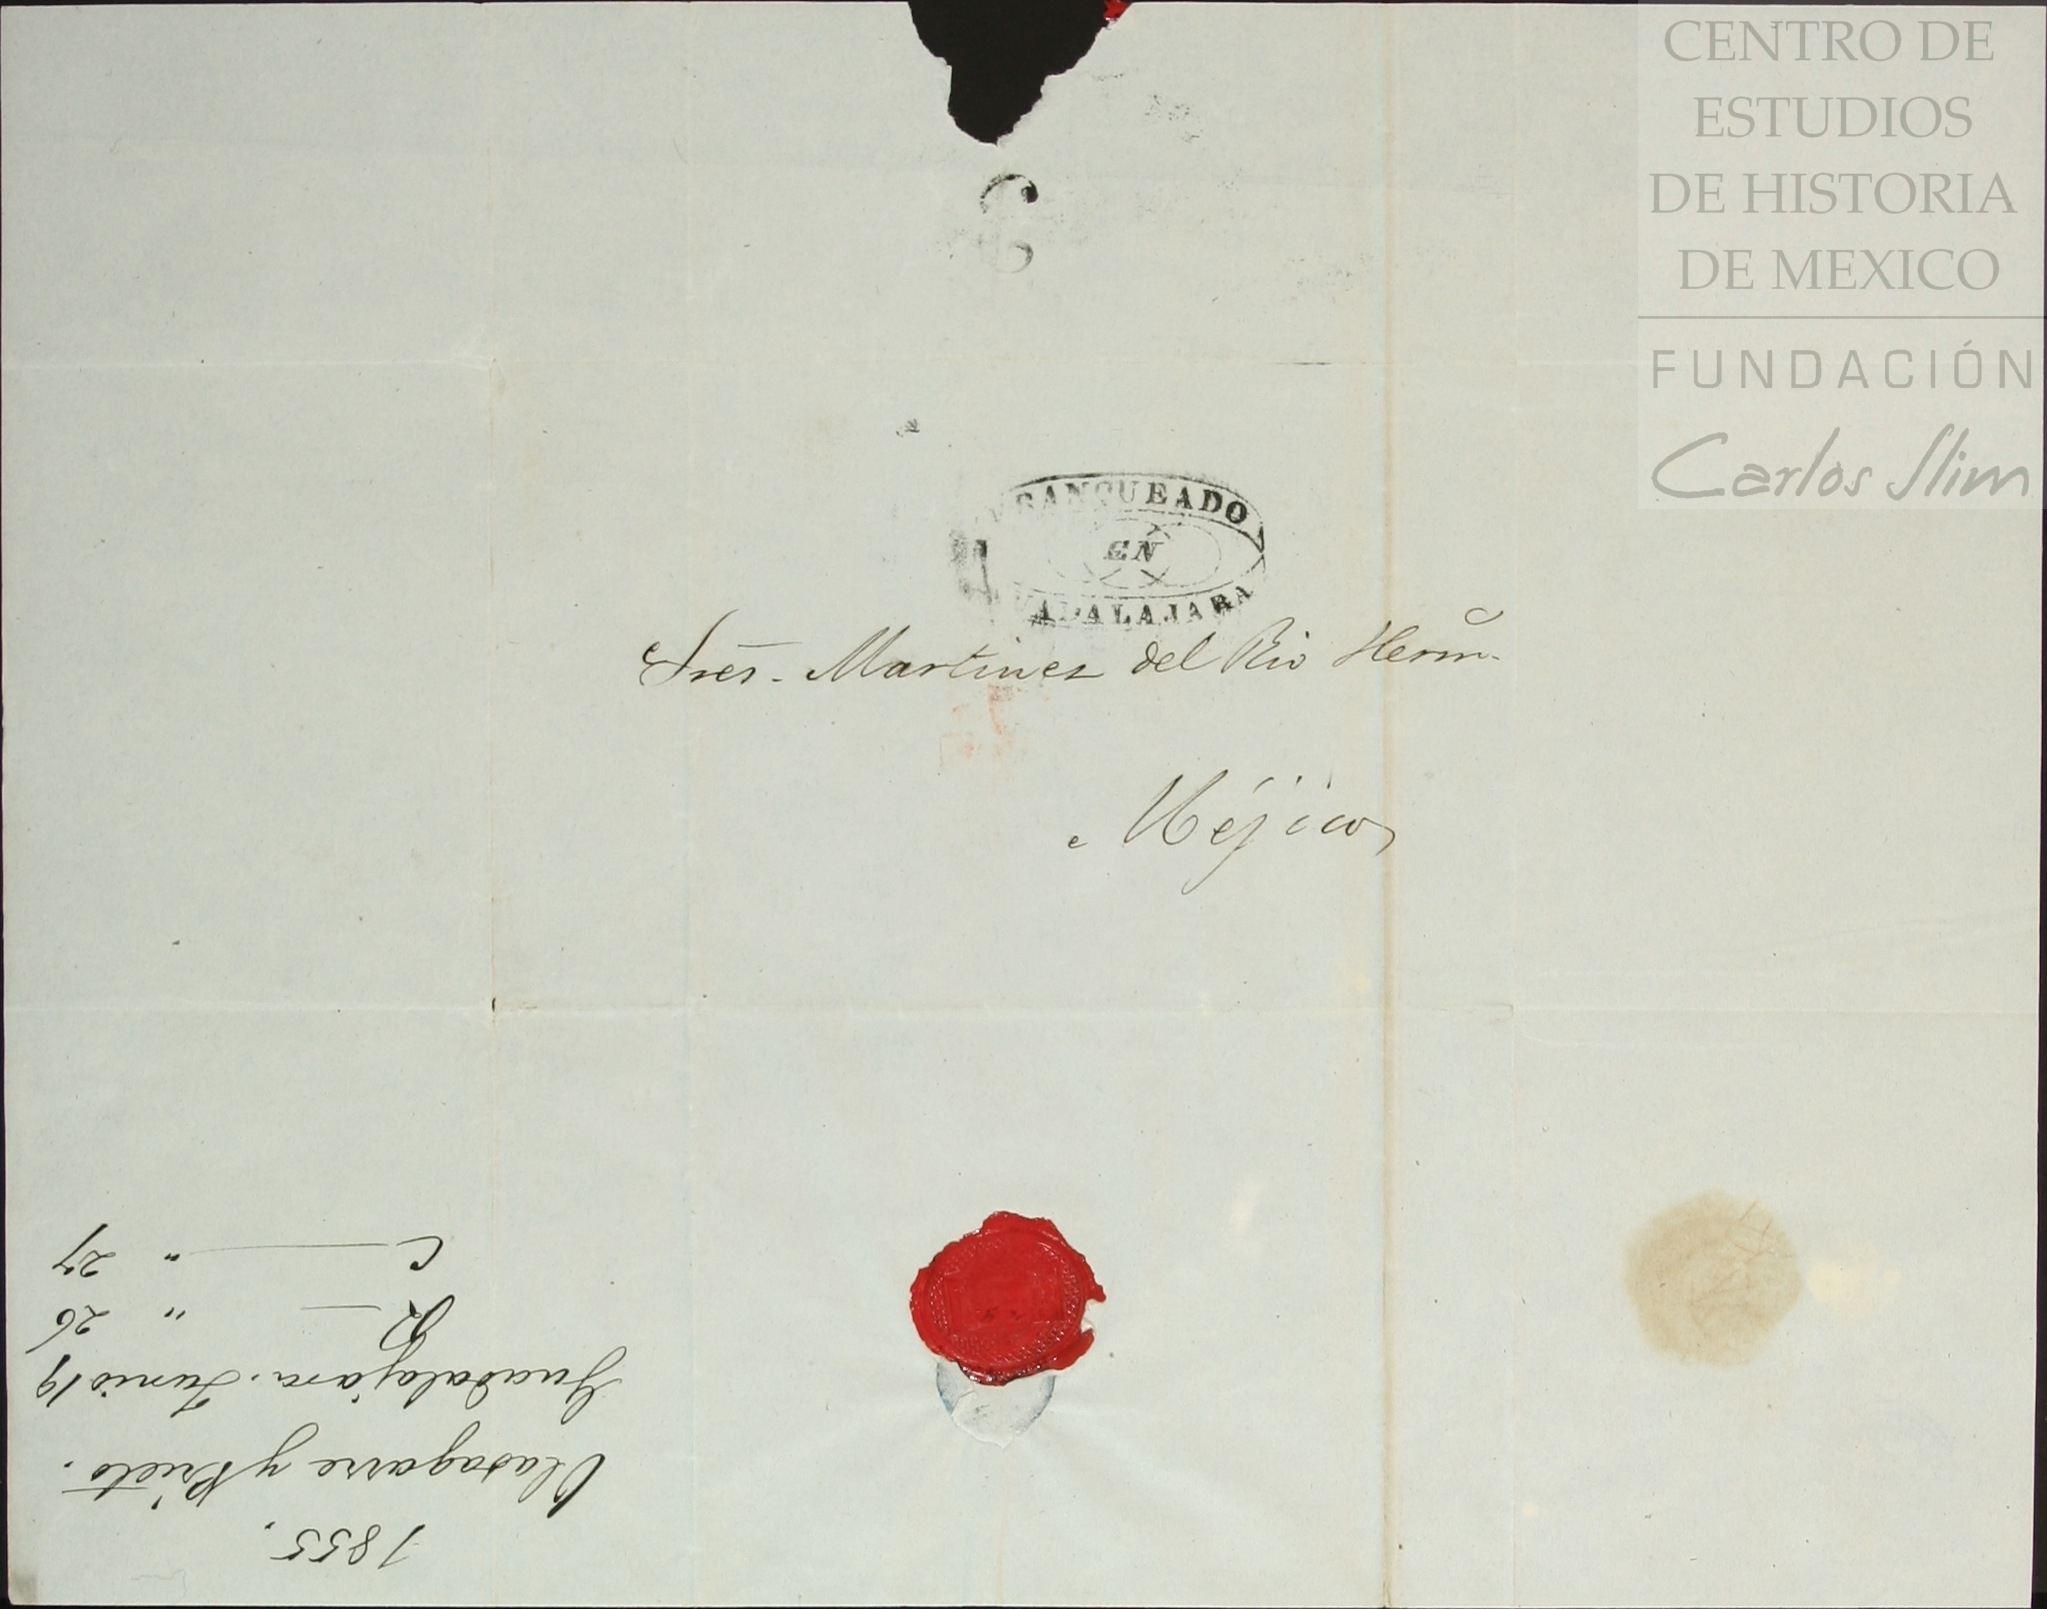 CENTRO DE
ESTUDIOS
DE HISTORIA
DE MEXICO
FUNDACIÓN
Carlos Slim
FRANQUEADO
EN
GUADALAJARA
Sres. Martinez del Rio Herm.
Méjico
1855.
Olasagarre y Prieto.
Guadalajara. Junio 19
R — " 26
C — " 27